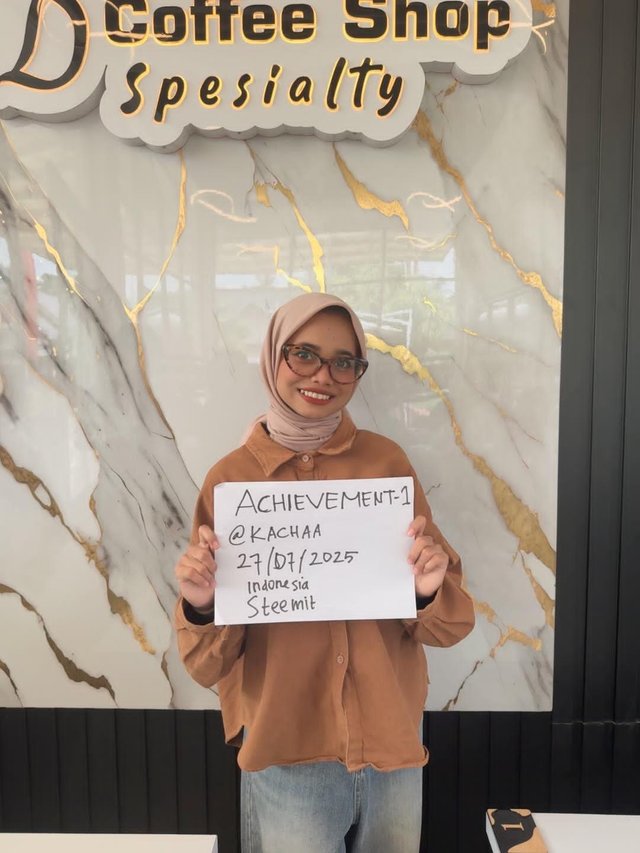 Coffee Shop
Spesialty
ACHIEVEMENT-1
@KACHAA
27/07/2025
Indonesia
Steemit
1